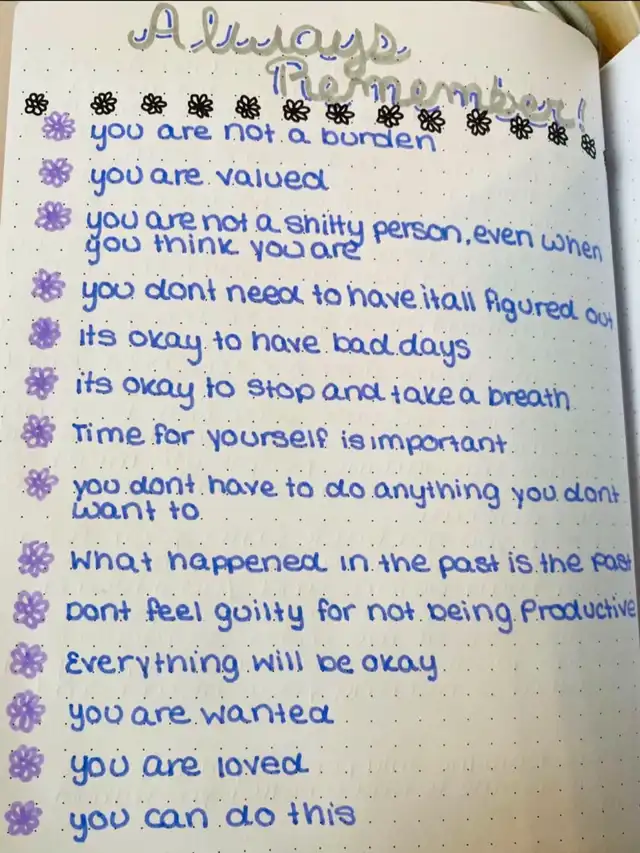 Always
Remember!
you are not a burden
you are valued
you are not a shitty person, even when
you think you are
you dont need to have it all figured out
its okay to have bad days
its okay to stop and take a breath
Time for yourself is important
you dont have to do anything you dont
want to
What happened in the past is the past
Dont feel guilty for not being Productive
Everything will be okay
you are wanted
you are loved
you can do this